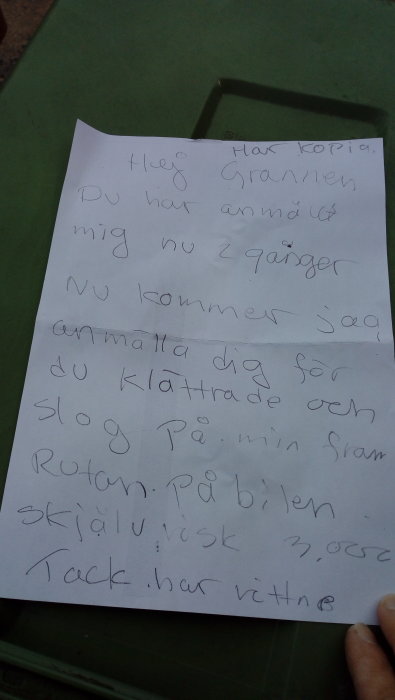 Har kopia.
Hej Grannen
Du har anmält
mig nu 2 gånger
Nu kommer jag
anmälla dig för
du klättrade och
slog På min fram
Rutan. På bilen.
skjälv risk 3,000
Tack. har vittne